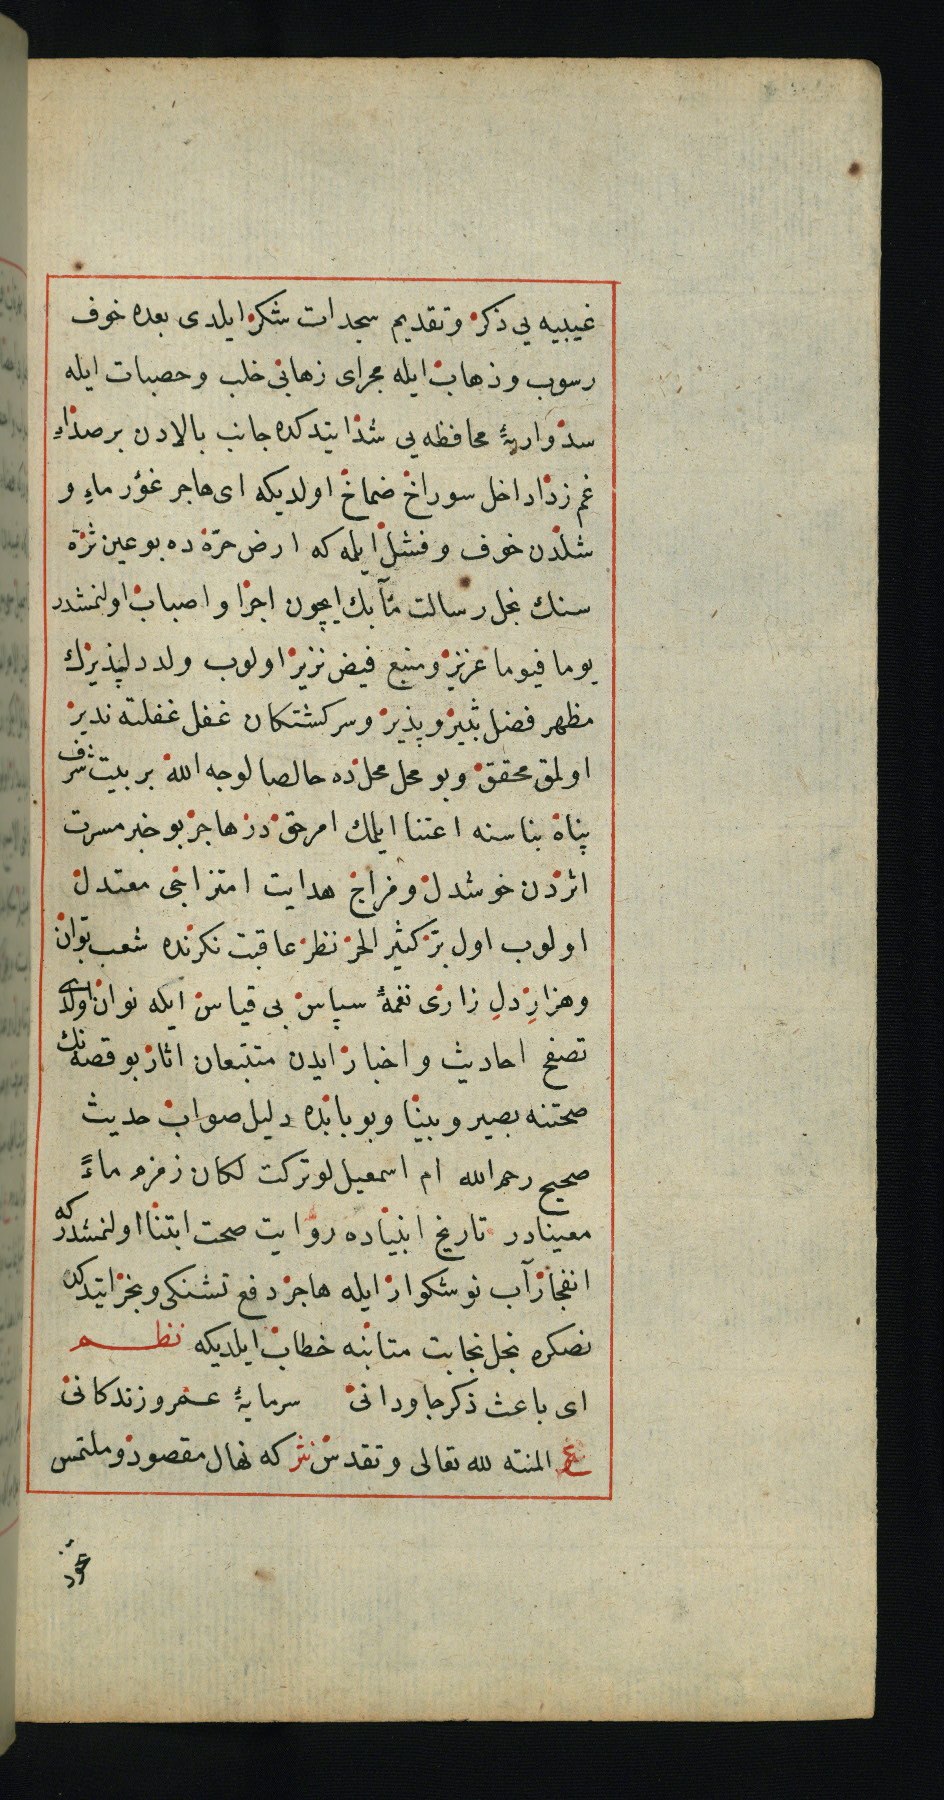 غيبيه يي ذكر و تقديم سجدات شكر ايلدى بعده خوف
رسوب و ذهاب ايله مجراى زهابى خلب و حصبات ايله
سد و اربۀ محافظه يى شد ايتدكده جانب بالادن بر صداءِ
غم زدا داخل سوراخ ضماخ اولديكه اى هاجر غؤر ماءِ و
شلدن خوف و فشل ايلمه كه ارض حرّه ده بو عين ثرّة
سنك نجل رسالت مآبك ايچون اجرا و اصباب اولنمشدر
يوما فيوما عزيز و منبع فيض نزير اولوب ولد دلپذيرك
مظهر فضل بثير و پذير و سركشتكان غفل غفلته نذير
اولمق محقق و بو محل محل ده حالصا لوجه الله بر بيت شرف
پناه بناسنه اعتنا ايلمك امر حق در هاجر بو خبر مسرت
اثردن خوشدل و مزاج هدايت امتزاجى معتدل
اولوب اول بر كثير الحر نظر عاقبت نكرنده شعب بوّان
و هزارِ دلِ زارى نغمۀ سپاس بى قياس ايله نوان اولدى
تصفح احاديث و اخبار ايدن متتبعان اثار بو قصه نك
صحتنه بصير و بينا و بو بابده دليل صواب حديث
صحيح رحم الله ام اسمعيل لو تركت لكان زمزم ماءً
معينا در تاريخ انبياده روايت صحت ابتنا اولنمشدركه
انفجار آب نوشكوار ايله هاجر دفع تشنكى و بخر ايتدكدن
نصكره نجل نجابت متابنه خطاب ايلديكه نظم
اى باعث ذكر جاودانى سرمايۀ عمر و زندكانى
ع المنته لله تعالى و تقدس نثر كه نهال مقصود و ملتمس